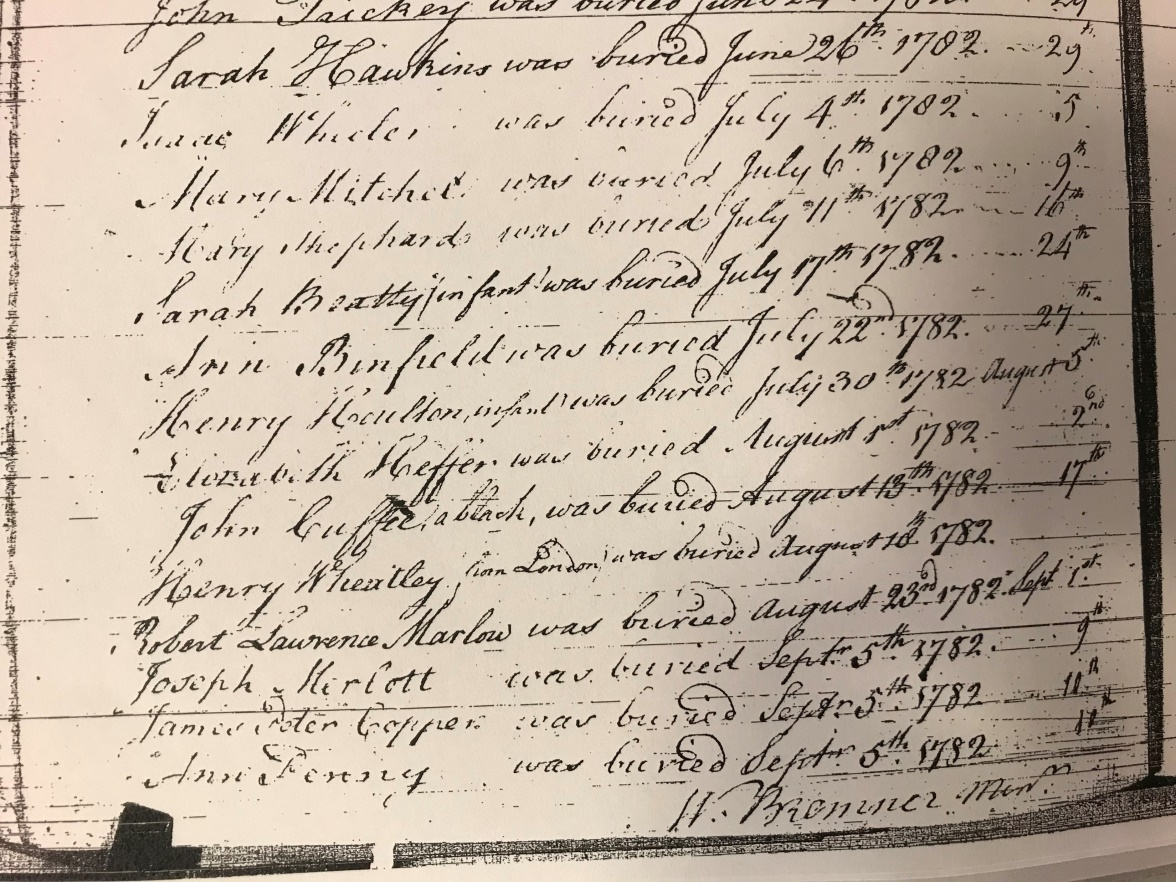 John Trickey was buried June 24th 1782. 29
Sarah Hawkins was buried June 26th 1782. 29th
Isaac Wheeler was buried July 4th 1782. 5
Mary Mitchel was buried July 6th 1782. 9th
Mary Shephard was buried July 11th 1782 16th
Sarah Beatty (infant) was buried July 17th 1782. 24th
Ann Binfield was buried July 22nd 1782. 27th
Henry Houlton, infant was buried July 30th 1782 August 5th
Elizabeth Heffer was buried August 1st 1782 2nd
John Cuffee, a black, was buried August 13th 1782 17th
Henry Wheatley (from London) was buried August 18th 1782.
Robert Lawrence Marlow was buried August 23rd 1782 Sept 1st
Joseph Merlott was buried Septr 5th 1782. 9th
James Peter Copper was buried Septr 5th 1782 11th
Ann Fenny was buried Septr 5th 1782 11th
W. Bromner Minr